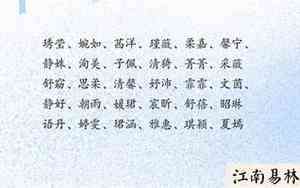 琇莹、婉如、菡洋、瑾薇、柔嘉、馨宁、
静姝、洵美、子佩、清绮、菁菁、采薇
舒窈、思柔、清馨、妤沛、霏霏、文茵、
静好、朝雨、媛珺、宸昕、舒蓓、昭琳
语丹、婷雯、珺涵、雅惠、琪颖、夏嫣
江南易林